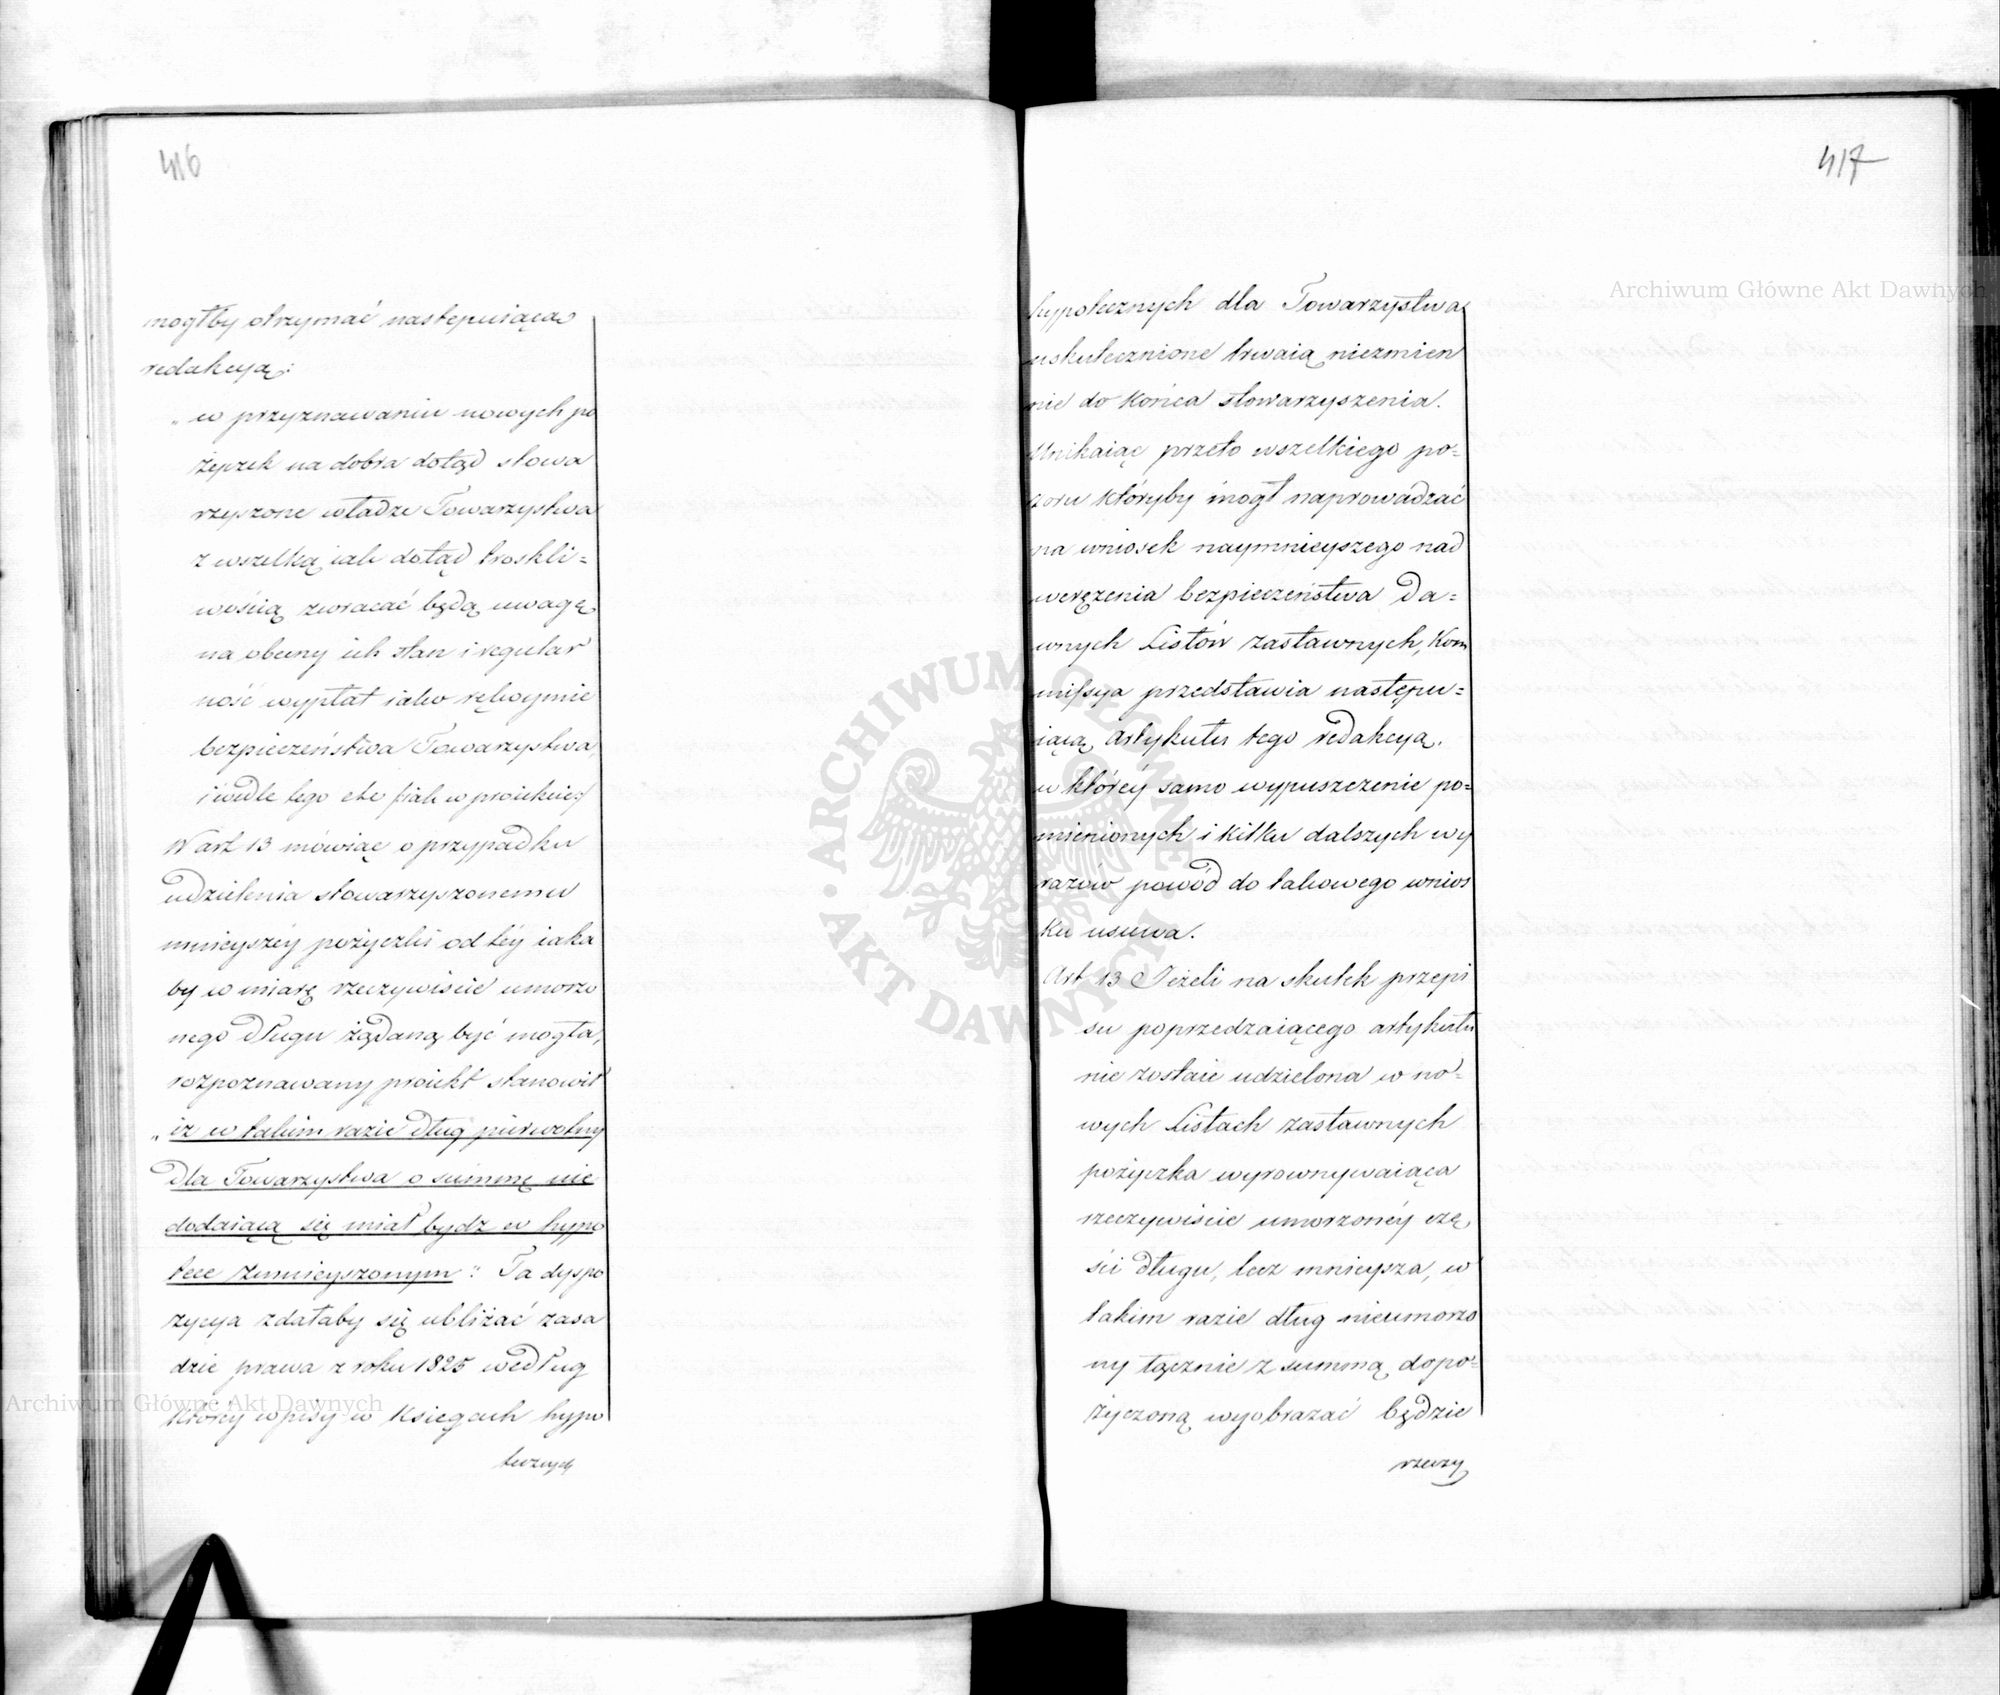 416
mogłby otrzymać następuiącą
redakcyą:
„w przyznawaniu nowych po
życzek na dobra dotąd stowa
rzyszone władze Towarzystwa
z wszelką iak dotąd troskli=
wością zwracać będą uwagę
na obecny ich stan i regular
ność wypłat iako rękoymie
bezpieczeństwa Towarzystwa
i wedle tego etc /:iak w proiekcie:/
W art 13 mówiąc o przypadku
udzielenia stowarzyszonemu
mnieyszéy pożyczki od téy iaka
by w miarę rzeczywiście umorzo
nego długu żądaną być mogła,
rozpoznawany proiekt stanowił
„iż w takim razie dług pierwotny
dla Towarzystwa o summę nie
dodaiącą się miał bydz w hypo
tece zmnieyszonym“. Ta dyspo
zycya zdałaby się ubliżać zasa
dzie prawa z roku 1825 według
któréy wpisy w Księgach hypo
tecznych
417
hypotecznych dla Towarzystwa
uskutecznione trwaią niezmien
nie do końca stowarzyszenia.
Unikaiąc przeto wszelkiego po=
zoru któryby mogł naprowadzać
na wniosek naymnieyszego nad
werężenia bezpieczeństwa Da=
wnych Listów zastawnych, Kom
missya przedstawia następu=
iącą artykułu tego redakcyą.
w któréy samo wypuszczenie po=
mienionych i kilku dalszych wy
razów powód do takowego wnios
ku usuwa.
Art 13 Jeżeli na skutek przepi
su poprzedzaiącego artykułu
nie zostaie udzielona w no=
wych Listach zastawnych
pożyczka wyrownywaiąca
rzeczywiście umorzonéy czę
ści długu, lecz mnieysza, w
takim razie dług nieumorzo
ny łącznie z summą dopo=
życzoną wyobrazać będzie
rzeczy
Archiwum Główne Akt Dawnych
Archiwum Główne Akt Dawnych
ARCHIWUM GŁÓWNE AKT DAWNYCH